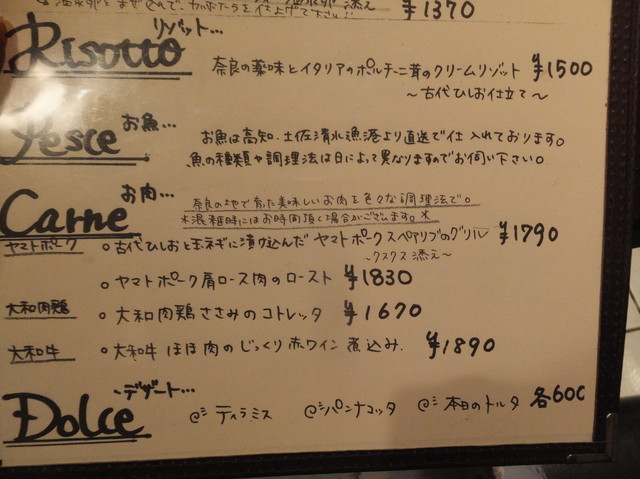 添え ¥1370
リゾット...
Risotto
奈良の薬味とイタリアのポルチーニ茸のクリームリゾット ¥1500
~古代ひしお仕立て~
お魚...
Pesce
お魚は高知、土佐清水漁港より直送で仕入れております。
魚の種類や調理法は日によって異なりますのでお伺い下さい。
お肉...
Carne
奈良の地で育った美味しいお肉を色々な調理法で。
*混雑時にはお時間頂く場合がございます。*
ヤマトポーク
○古代ひしおと玉ネギに漬け込んだ ヤマトポークスペアリブのグリル ¥1790
~クスクス添え~
○ヤマトポーク肩ロース肉のロースト ¥1830
大和肉鶏 ○大和肉鶏ささみのコトレッタ ¥1670
大和牛 ○大和牛ほほ肉のじっくり赤ワイン煮込み. ¥1890
デザート...
Dolce
ティラミス パンナコッタ 本日のトルタ 各600